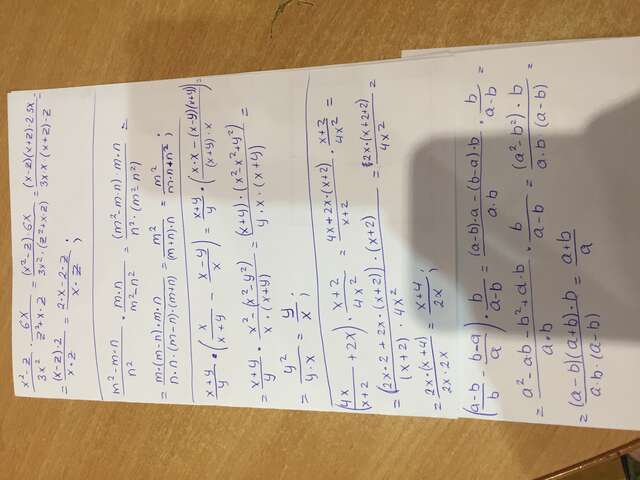 (x² - z)/(3x²) · (6x)/(z² + x·z) = ((x² - z)·6x)/(3x²·(z² + x·z)) = ((x-z)(x+z)·2·3x)/(3x·x·(x+z)·z) =
= ((x-z)·2)/(x·z) = (2·x - 2·z)/(x·z) ;
(m² - m·n)/(n²) · (m·n)/(m² - n²) = ((m² - m·n)·m·n)/(n²·(m² - n²)) =
= (m·(m-n)·m·n)/(n·n·(m-n)·(m+n)) = (m²)/((m+n)·n) = (m²)/(m·n + n²) ;
(x+y)/y · (x/(x+y) - (x-y)/x) = (x+y)/y · ((x·x - (x-y)(x+y))/((x+y)·x)) =
= (x+y)/y · (x² - (x² - y²))/(x·(x+y)) = ((x+y)·(x² - x² + y²))/(y·x·(x+y)) =
= (y²)/(y·x) = y/x ;
(4x/(x+2) + 2x) · (x+2)/(4x²) = (4x + 2x·(x+2))/(x+2) · (x+2)/(4x²) =
= ((2x·2 + 2x·(x+2))·(x+2))/((x+2)·4x²) = (2x·(x+2+2))/(4x²) =
= (2x·(x+4))/(2x·2x) = (x+4)/(2x) ;
((a-b)/b - (b-a)/a) · b/(a-b) = ((a-b)·a - (b-a)·b)/(a·b) · b/(a-b) =
= (a² - a·b - b² + a·b)/(a·b) · b/(a-b) = ((a² - b²)·b)/(a·b·(a-b)) =
= ((a-b)(a+b)·b)/(a·b·(a-b)) = (a+b)/a